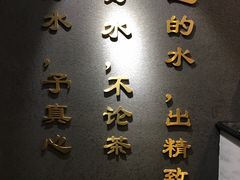 的水,出精致
水,不论茶
水,予真心